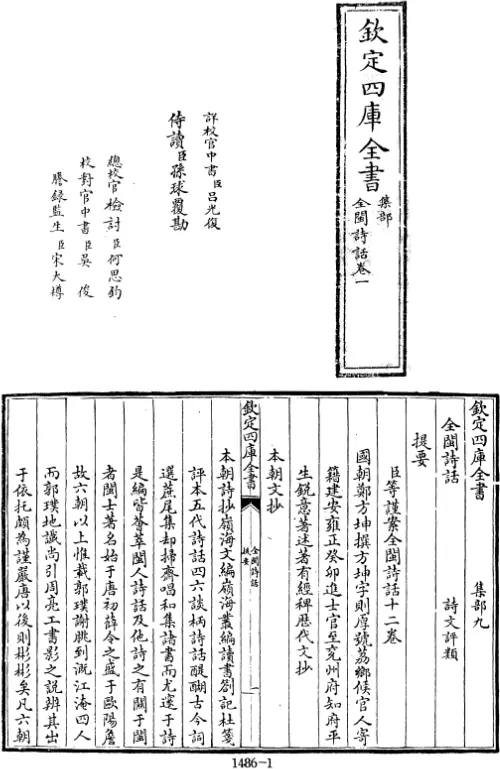 欽定四庫全書
集部
全閩詩話卷一
詳校官中書臣呂光復
侍讀臣孫球覆勘
總校官檢討臣何思鈞
校對官中書臣吳俊
謄錄監生臣宋大樽
欽定四庫全書 集部九
全閩詩話 詩文評類
提要
臣等謹案全閩詩話十二卷
國朝鄭方坤撰方坤字則厚號荔鄉候官人寄
籍建安雍正癸卯進士官至兗州府知府平
生銳意著述著有經稗歷代文抄
本朝文抄
欽定四庫全書
全閩詩話
提要
一
本朝詩抄嶺海文編嶺海叢編讀書劄記杜箋
評本五代詩話四六談柄詩話醍醐古今詞
選蔗尾集却掃齋唱和集諸書而尤邃于詩
是編皆薈萃閩人詩話及他詩之有關于閩
者閩士著名始于唐初薛令之盛于歐陽詹
故六朝以上惟載郭璞謝朓到溉江淹四人
而郭璞地讖尚引周亮工書影之説辨其出
于依托頗為謹嚴唐以後則彬彬矣凡六朝
1486-1